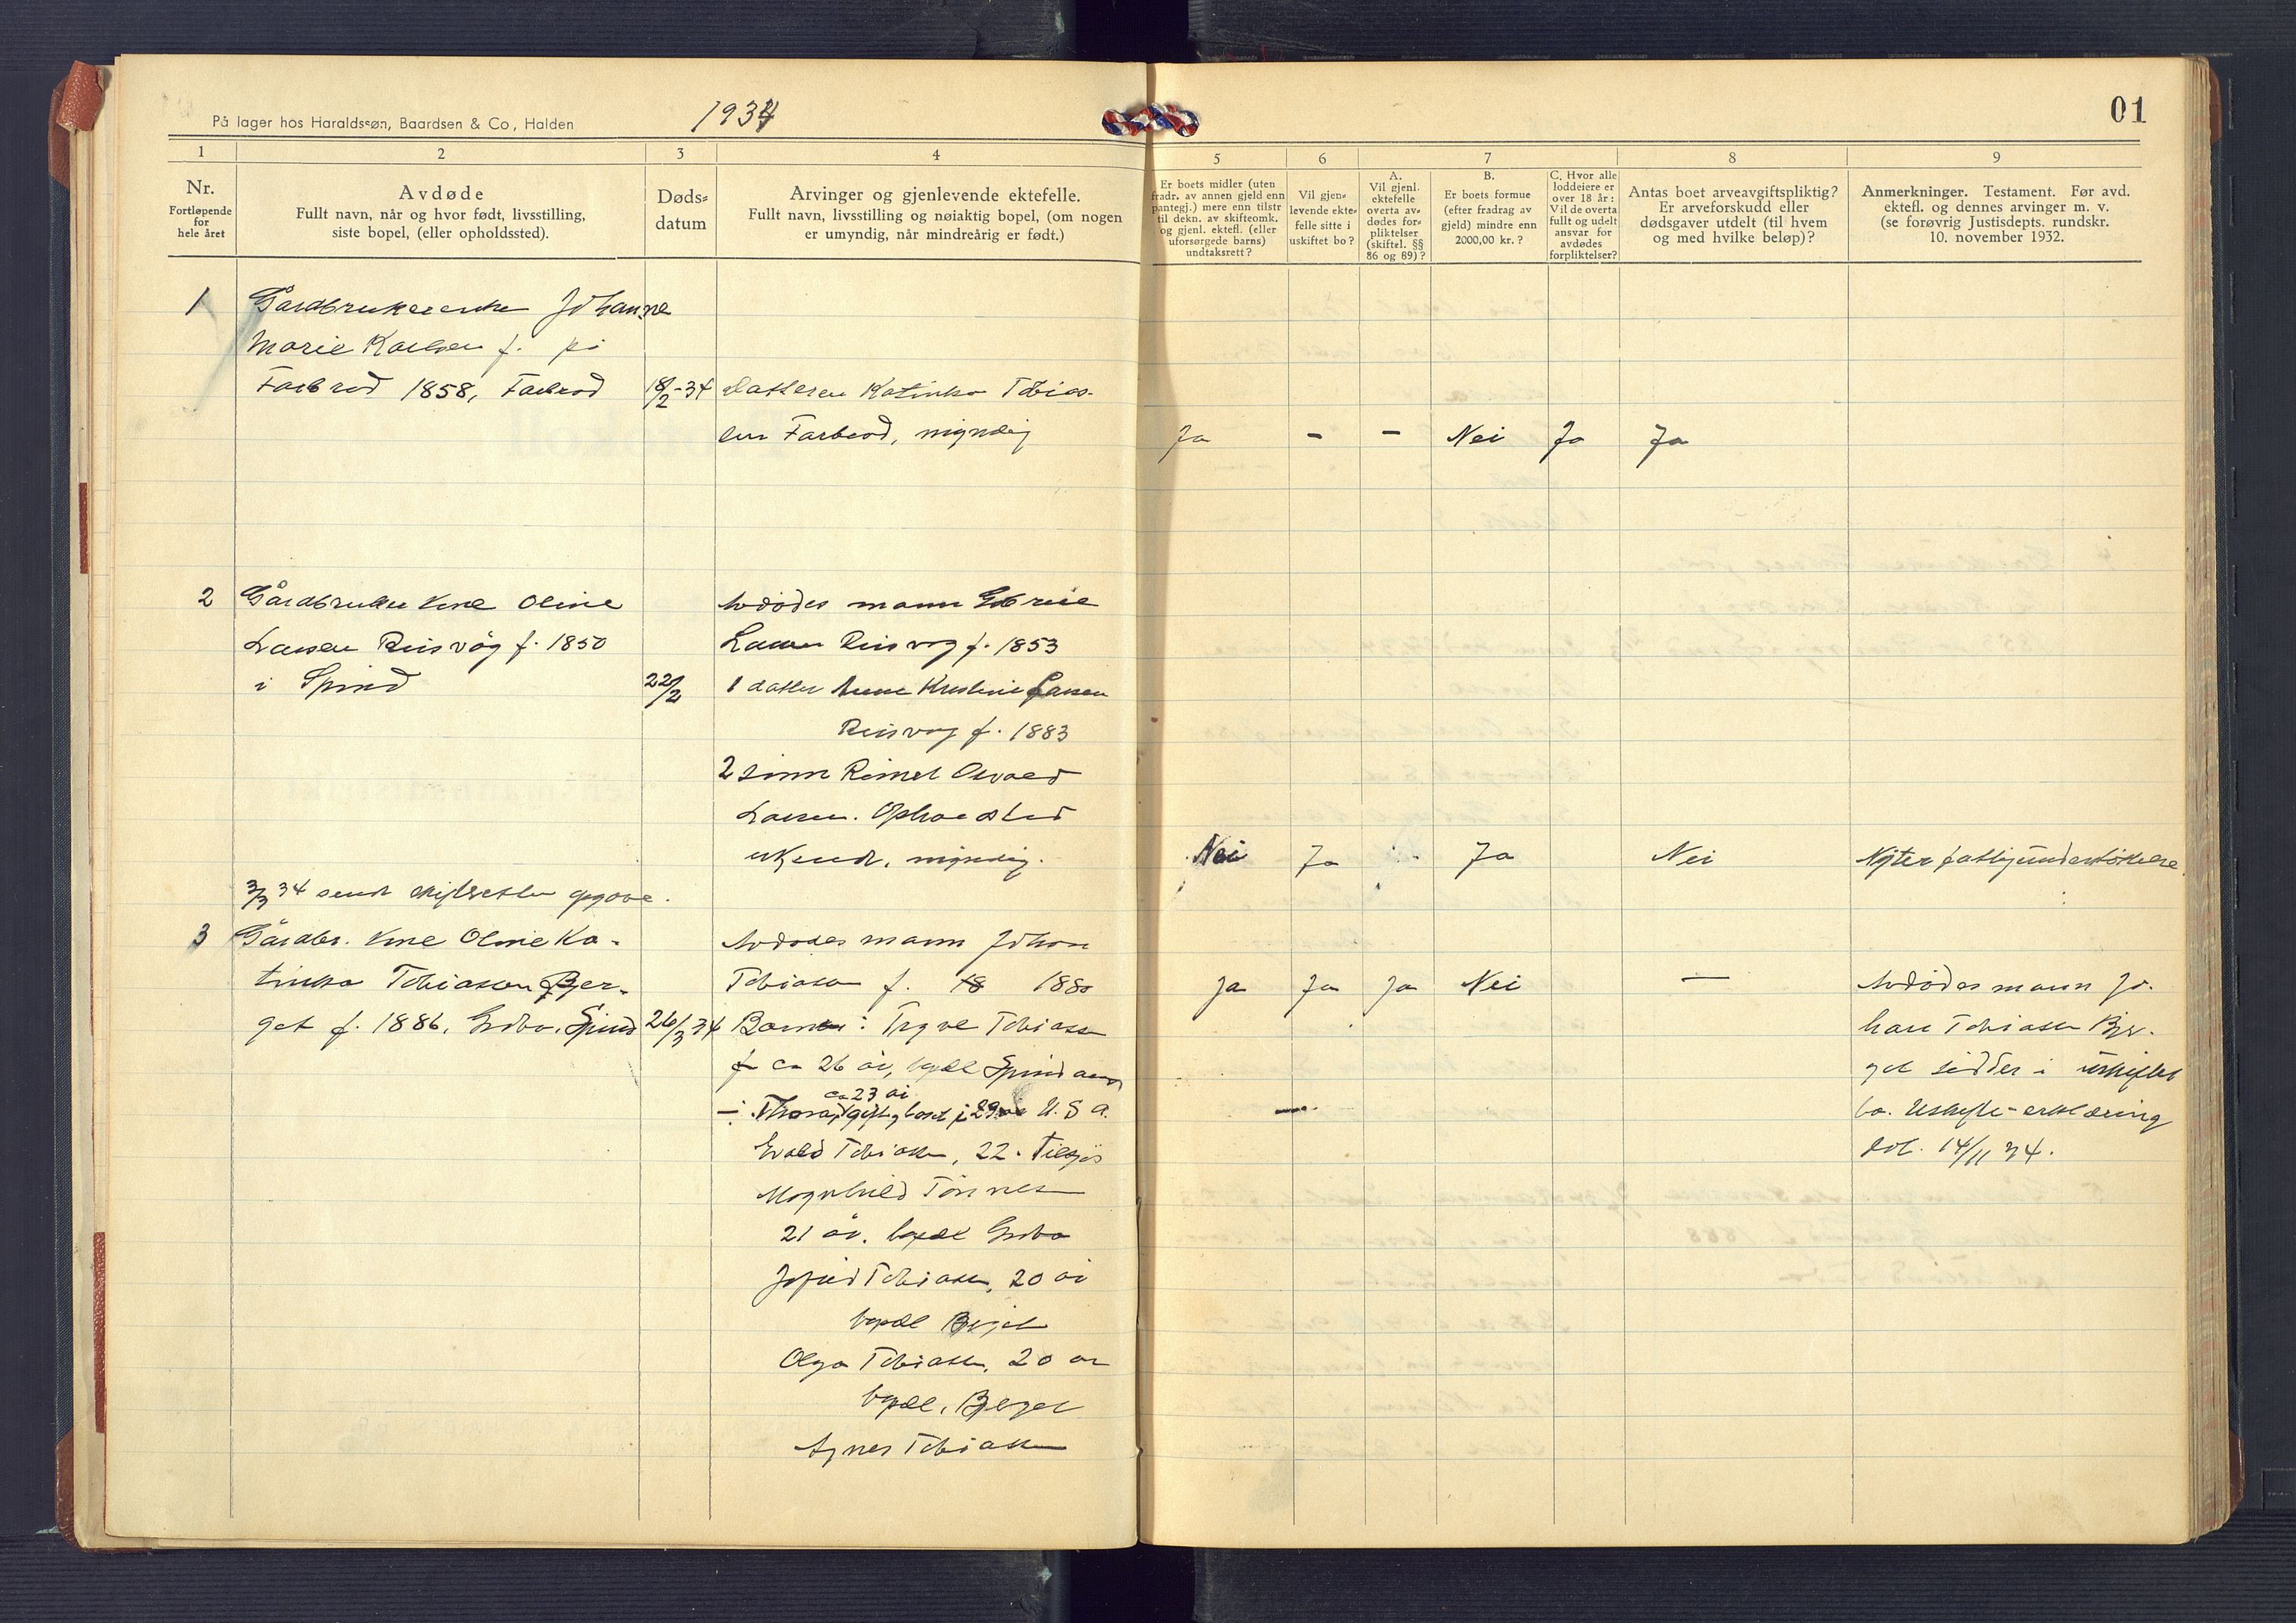 På lager hos Haraldssøn, Baardsen & Co, Halden
1934
01
1
2
3
4
5
6
7
8
9
Nr.
Fortløpende
for
hele året
Avdøde
Fullt navn, når og hvor født, livsstilling,
siste bopel, (eller opholdssted).
Døds-
datum
Arvinger og gjenlevende ektefelle.
Fullt navn, livsstilling og nøiaktig bopel, (om nogen
er umyndig, når mindreårig er født.)
Er boets midler (uten
fradr. av annen gjeld enn
pantegj.) mere enn tilstr
til dekn. av skifteomk.
og gjenl. ektefl. (eller
uforsørgede barns)
undtaksrett?
Vil gjen-
levende ekte-
felle sitte i
uskiftet bo?
A.
Vil gjenl.
ektefelle
overta av-
dødes for-
pliktelser
(skiftel. §§
86 og 89)?
B.
Er boets formue
(efter fradrag av
gjeld) mindre enn
2000,00 kr.?
C. Hvor alle
loddeiere er
over 18 år:
Vil de overta
fullt og udelt
ansvar for
avdødes
forpliktelser?
Antas boet arveavgiftspliktig?
Er arveforskudd eller
dødsgaver utdelt (til hvem
og med hvilke beløp)?
Anmerkninger. Testament. Før avd.
ektefl. og dennes arvinger m. v.
(se forøvrig Justisdepts. rundskr.
10. november 1932.
1 Gårdbrukerenke Johanne
Marie Karlsen f. på
Farbrod 1858, Farbrod 18/2-34 Datteren Katinka Tobias-
sen Farbrod, myndig Ja - - Nei Ja Ja
2 Gårdbruker kone Oline Avdødes mann Gabriel
Larsen Reisvåg f. 1850 Larsen Reisvåg f. 1853
i Spind 22/2 1 datter Anne Kristine Larsen
Reisvåg f. 1883
2 sønn Reinert Olvald
Larsen. Opholdsted
ukjendt, myndig. Nei Ja Ja Nei Nyter fattigunderstøttelse
3/3 34 sendt skifteretten opgave.
3 Gårdbr. kone Oline Ka- Avdødes mann Johan
tinka Tobiassen Bjer- Tobiassen f. 18 1880 Ja Ja Ja Nei — Avdødes mann Jo-
get f. 1886, Spind 26/3 34 Barn: Trygve Tobiassen han Tobiassen Bjer-
f ca 26 år, bopel Spind get sidder i uskiftet
ca 23 år
gift, bosat i U.S.A. — bo. Uskifte-erklæring
Evald Tobiassen, 22. Tilsjøs dat. 14/11 34.
Magnhild Tønnes
21 år. bopel
Tobiassen, 20 år
bopel Bjerget
Olga Tobiassen, 20 år
bopel, Bjerget
Agnes Tobiassen